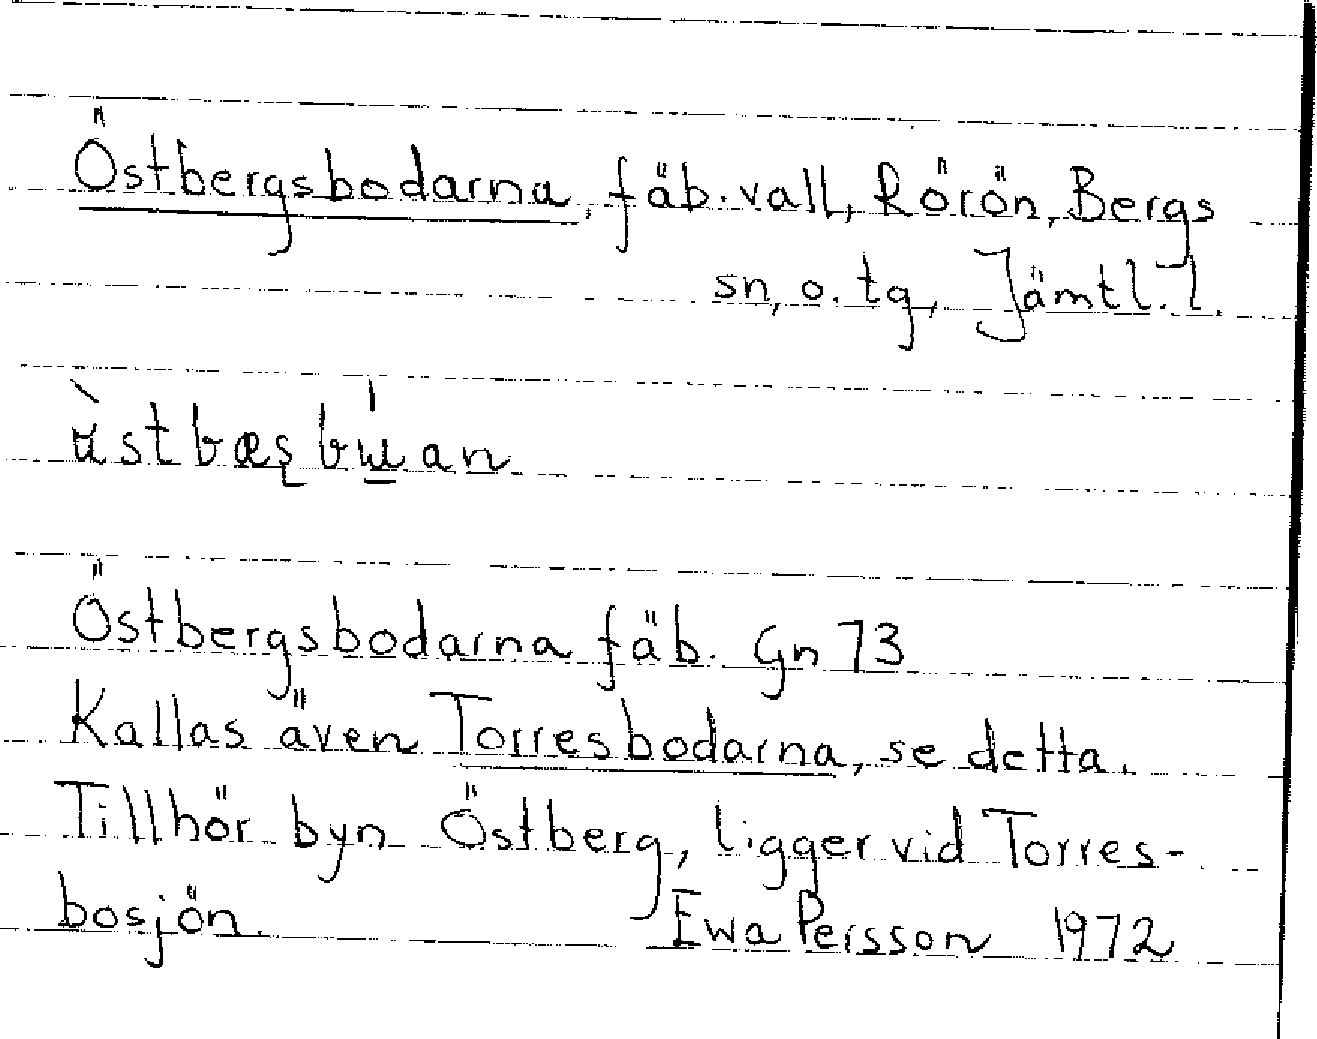 Östbergsbodarna, fäb.vall, Rörön, Bergs
sn, o. tg, Jämtl. l.
Östbergsbodarna fäb. Gn 73
Kallas även Torresbodarna, se detta.
Tillhör byn Östberg, ligger vid Torres-
bosjön. Ewa Persson 1972